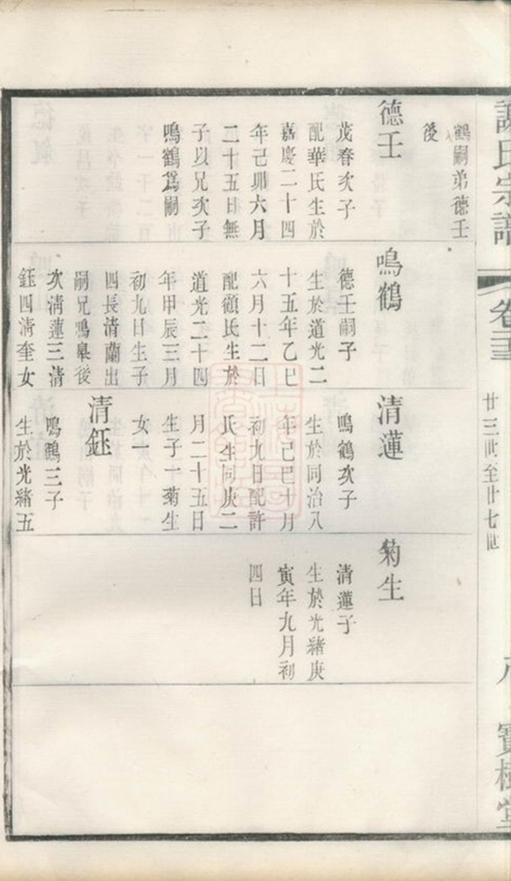 謝氏宗譜
卷三
廿三世至廿七世
寶樹堂
鶴嗣弟德王
後
德王
茂春次子
配華氏生於
嘉慶二十四
年己卯六月
二十五日無
子以兄次子
鳴鶴爲嗣
鳴鶴
德王嗣子
生於道光二
十五年乙巳
六月十二日
配顧氏生於
道光二十四
年甲辰三月
初九日生子
四長清蘭出
嗣兄鳴皋後
次清蓮三清
鈺四清奎女
清蓮
鳴鶴次子
生於同治八
年己巳十月
初九日配許
氏生同庚二
月二十五日
生子一菊生
女一
清鈺
鳴鶴三子
生於光緒五
菊生
清蓮子
生於光緒庚
寅年九月初
四日